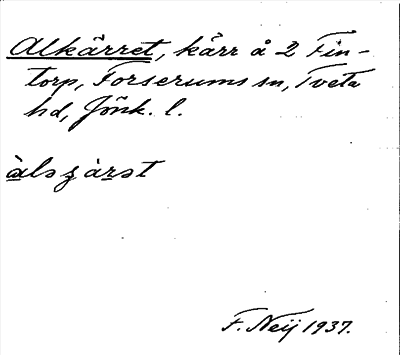 Alkärret, kärr å 2 Fin-
torp, Forserums sn, Tveta
hd, Jönk. l.
F. Neij 1937.